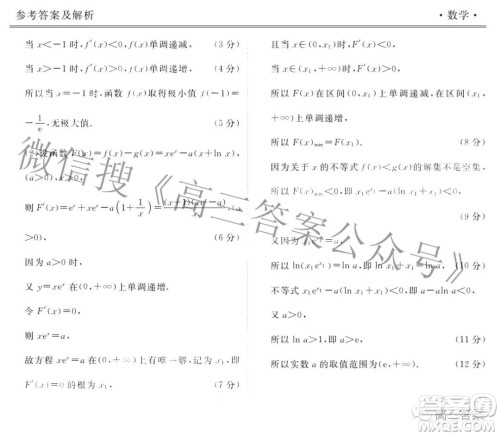 参考答案及解析
·数学·
当x<-1时,f′(x)<0,f(x)单调递减, (3分)
当x>-1时,f′(x)>0,f(x)单调递增, (4分)
所以当x=-1时,函数f(x)取得极小值f(-1)=
-1/e,无极大值. (5分)
设函数F(x)=f(x)-g(x)=xeˣ-a(x+ln x),
(a>0),x>0,
则F′(x)=eˣ+xeˣ-a(1+1/x)=(x+1)(xeˣ-a)/x,(a
>0), (6分)
因为a>0时,
又y=xeˣ在(0,+∞)上单调递增.
令F′(x)=0,
则xeˣ=a,
故方程xeˣ=a在(0,+∞)上有唯一解,记为x₁,即
F′(x)=0的根为x₁, (7分)
且当x∈(0,x₁)时,F′(x)<0,
当x∈(x₁,+∞)时,F′(x)>0,
所以F(x)在区间(0,x₁)上单调递减,在区间(x₁,
+∞)上单调递增,
所以F(x)min=F(x₁). (8分)
因为关于x的不等式f(x)<g(x)的解集不是空集,
所以F(x)min<0,即x₁eˣ¹-a(ln x₁+x₁)<0,
(9分)
又因为x₁eˣ¹=a,
所以ln(x₁eˣ¹)=ln a,即ln x₁+x₁=ln a, (10分)
不等式x₁eˣ¹-a(ln x₁+x₁)<0,即a-aln a<0,
又a>0,
所以ln a>1,即a>e, (11分)
所以实数a的取值范围为(e,+∞). (12分)
微信搜《高三答案公众号》
高三答案